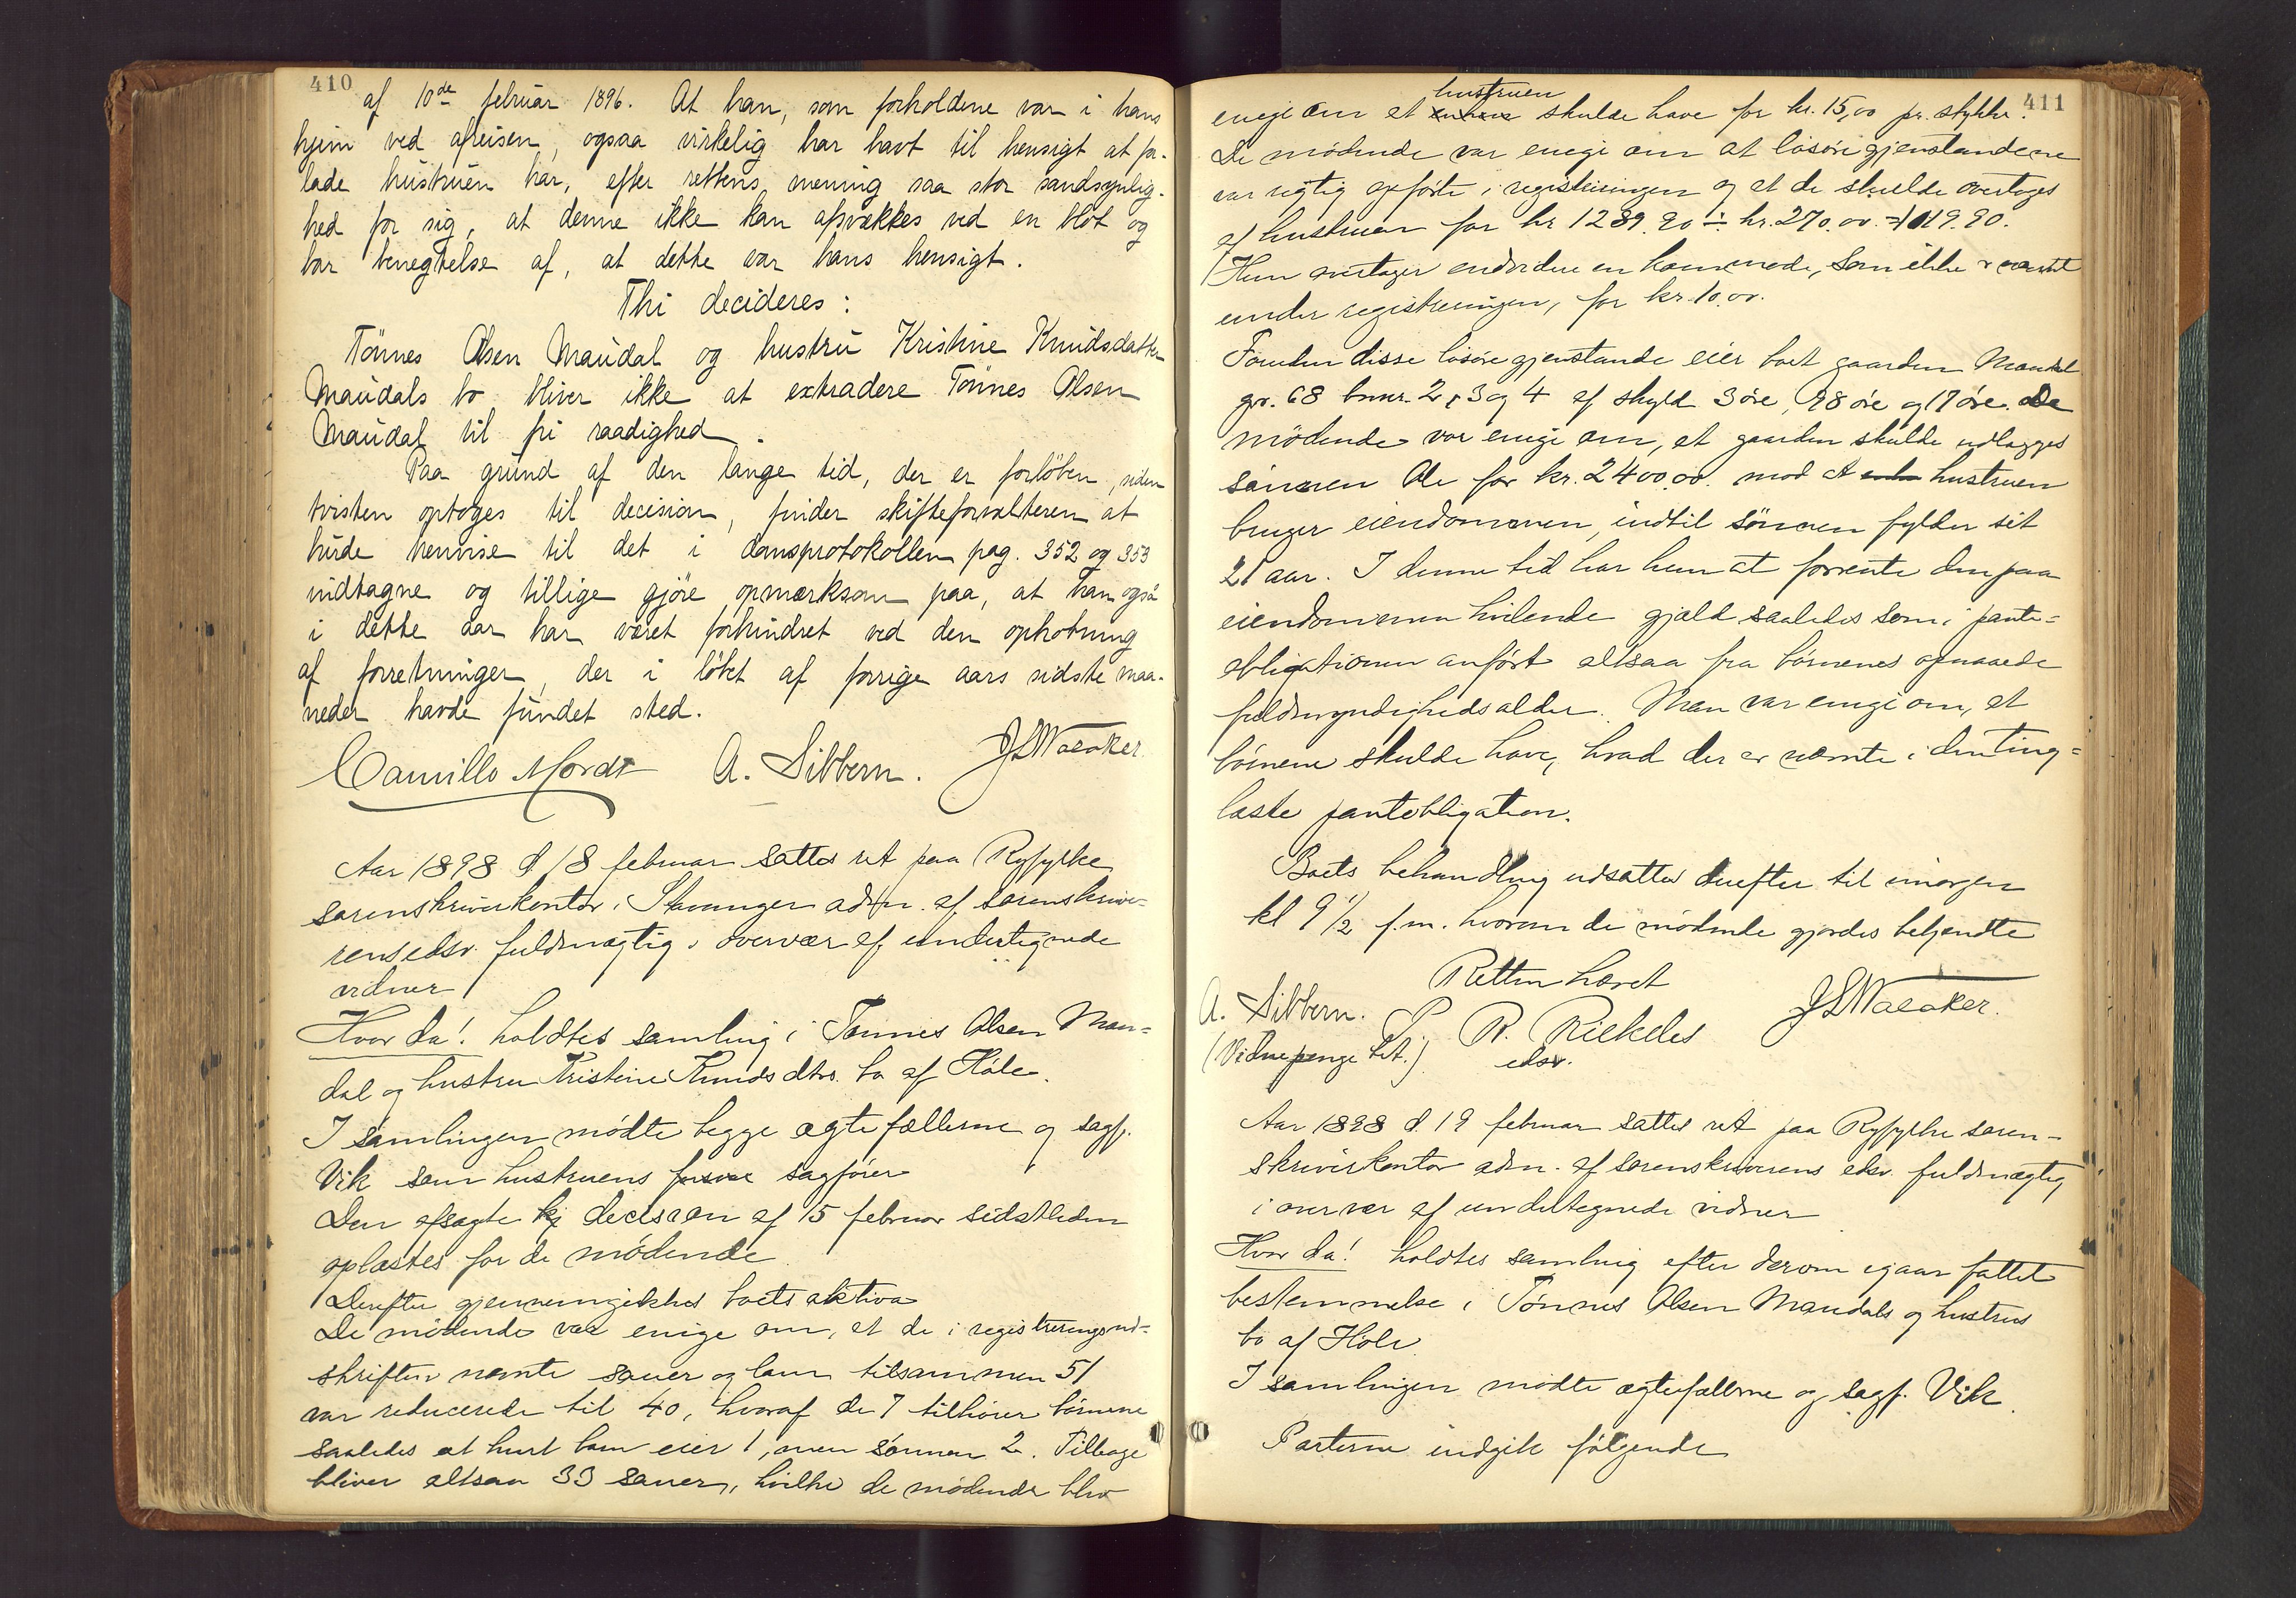 410
af 10de februar 1896. At han, som forholdene var i hans
hjem ved afreisen, ogsaa virkelig har havt til hensigt at for-
lade hustruen har, efter rettens mening saa stor sandsynlig-
hed for sig, at denne ikke kan afsvækkes ved en blot og
bar benegtelse af, at dette var hans hensigt.
Thi decideres:
Tönnes Olsen Maudal og hustru Kristine Knudsdatter
Maudals bo bliver ikke at extradere Tönnes Olsen
Maudal til fri raadighed.
Paa grund af den lange tid, der er forlöben, siden
tvisten optoges til decision, finder skifteforvalteren at
burde henvise til det i domsprotokollen pag. 352 og 353
indtagne og tillige gjöre opmærksom paa, at han også
i dette aar har været forhindret ved den ophobning
af forretninger, der i löbet af forrige aars sidste maa-
neder havde fundet sted.
Camillo Mordt A. Sibbern. JLWaaker
Aar 1898 d 18 februar sattes ret paa Ryfylke
sorenskriverkontor i Stavanger adm. af sorenskrive-
rens edsv. fuldmægtig i overvær af undertegnede
vidner
Hvor da! holdtes samling i Tönnes Olsen Mau-
dal og hustru Kristine Knudsdtrs. bo af Höle.
I samlingen mödte begge ægtefællerne og sagf.
Vik som hustruens sagförer
Den afsagte kj decision af 15 februar sidstleden
oplæstes for de mödende
Derefter gjennemgikkes boets aktiva
De mödende var enige om, at de i registreringsud-
skriften nævnte sauer og lam tilsammen 51
var reducerede til 40, hvoraf de 7 tilhörer börnene
saaledes at hvert barn eier 1, men sönnen 2. Tilbage
bliver altsaa 33 sauer, hvilke de mödende blev
411
hustruen
enige om at skulde have for kr. 15,00 pr. stykke.
De mödende var enige om at lösöregjenstandene
var rigtig opförte i registreringen og at de skulde overtages
af hustruen for kr 1289.90 ÷ kr. 270.00 = 1019.90.
Hun overtager endvidere en kommode, som ikke er nævnt
under registreringen, for kr. 10.00.
Foruden disse lösöregjenstande eier boet gaarden Maudal
gr. 68 brnr. 2, 3 og 4 af skyld 3 öre, 98 öre og 17 öre. De
mödende var enige om, at gaarden skulde udlægges
sönnen Ole for kr. 2400.00. mod at hustruen
bruger eiendommen, indtil sönnen fylder sit
21 aar. I denne tid har hun at forrente den paa
eiendommen hvilende gjæld saaledes som i pante-
obligationen anfört altsaa fra börnenes opnaaede
fuldmyndighedsalder. Man var enige om, at
börnene skulde have, hvad der er nævnte i den ting-
læste pantobligation.
Boets behandling udsattes derefter til imorgen
kl 9 1/2 f.m. hvorom de mödende gjordes bekjendte
Retten hævet
A. Sibbern. P. R. Riekeles JLWaaker.
(Vidnepenge bet.) edsv.
Aar 1898 d. 19 februar sattes ret paa Ryfylke soren-
skriverkontor adm. af sorenskriverens edsv. fuldmægtig
i overvær af undertegnede vidner
Hvor da! holdtes samling efter derom igaar fattet
bestemmelse i Tönnes Olsen Maudals og hustrus
bo af Höle
I samlingen mödte ægtefællerne og sagf. Vik
Parterne indgik fölgende